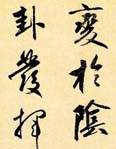 變於陰
卦發揮